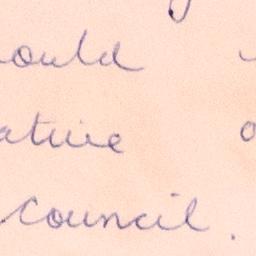 ould
ative o
council.